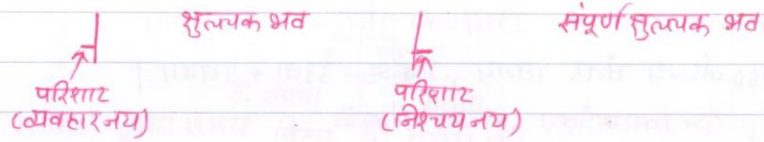 क्षुल्लक भव
संपूर्ण क्षुल्लक भव
परिशाट
(व्यवहार नय)
परिशाट
(निश्चय नय)